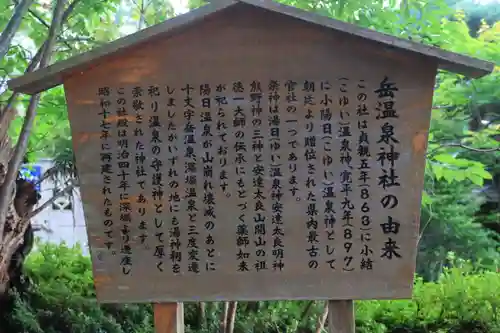 岳温泉神社の由来
この社は貞観五年(863)に小結
(こゆい)温泉神、寛平九年(897)
に小陽日(こゆい)温泉神として
朝廷より贈位された県内最古の
官社の一つであります。
祭神は湯日温泉神安達太良明神
熊野神の三神と安達太良山開山の祖
徳一大師の伝承にもとづく薬師如来
が祀られております。
陽日温泉が山崩れ壊滅のあとに
十文字岳温泉、深堀温泉と三度変遷
しましたがいずれの地にも湯神祠を
祀り温泉の守護神として厚く
崇敬された神社であります。
この社殿は明治四十年に深堀より遷座し
昭和十七年に再建されたものです。